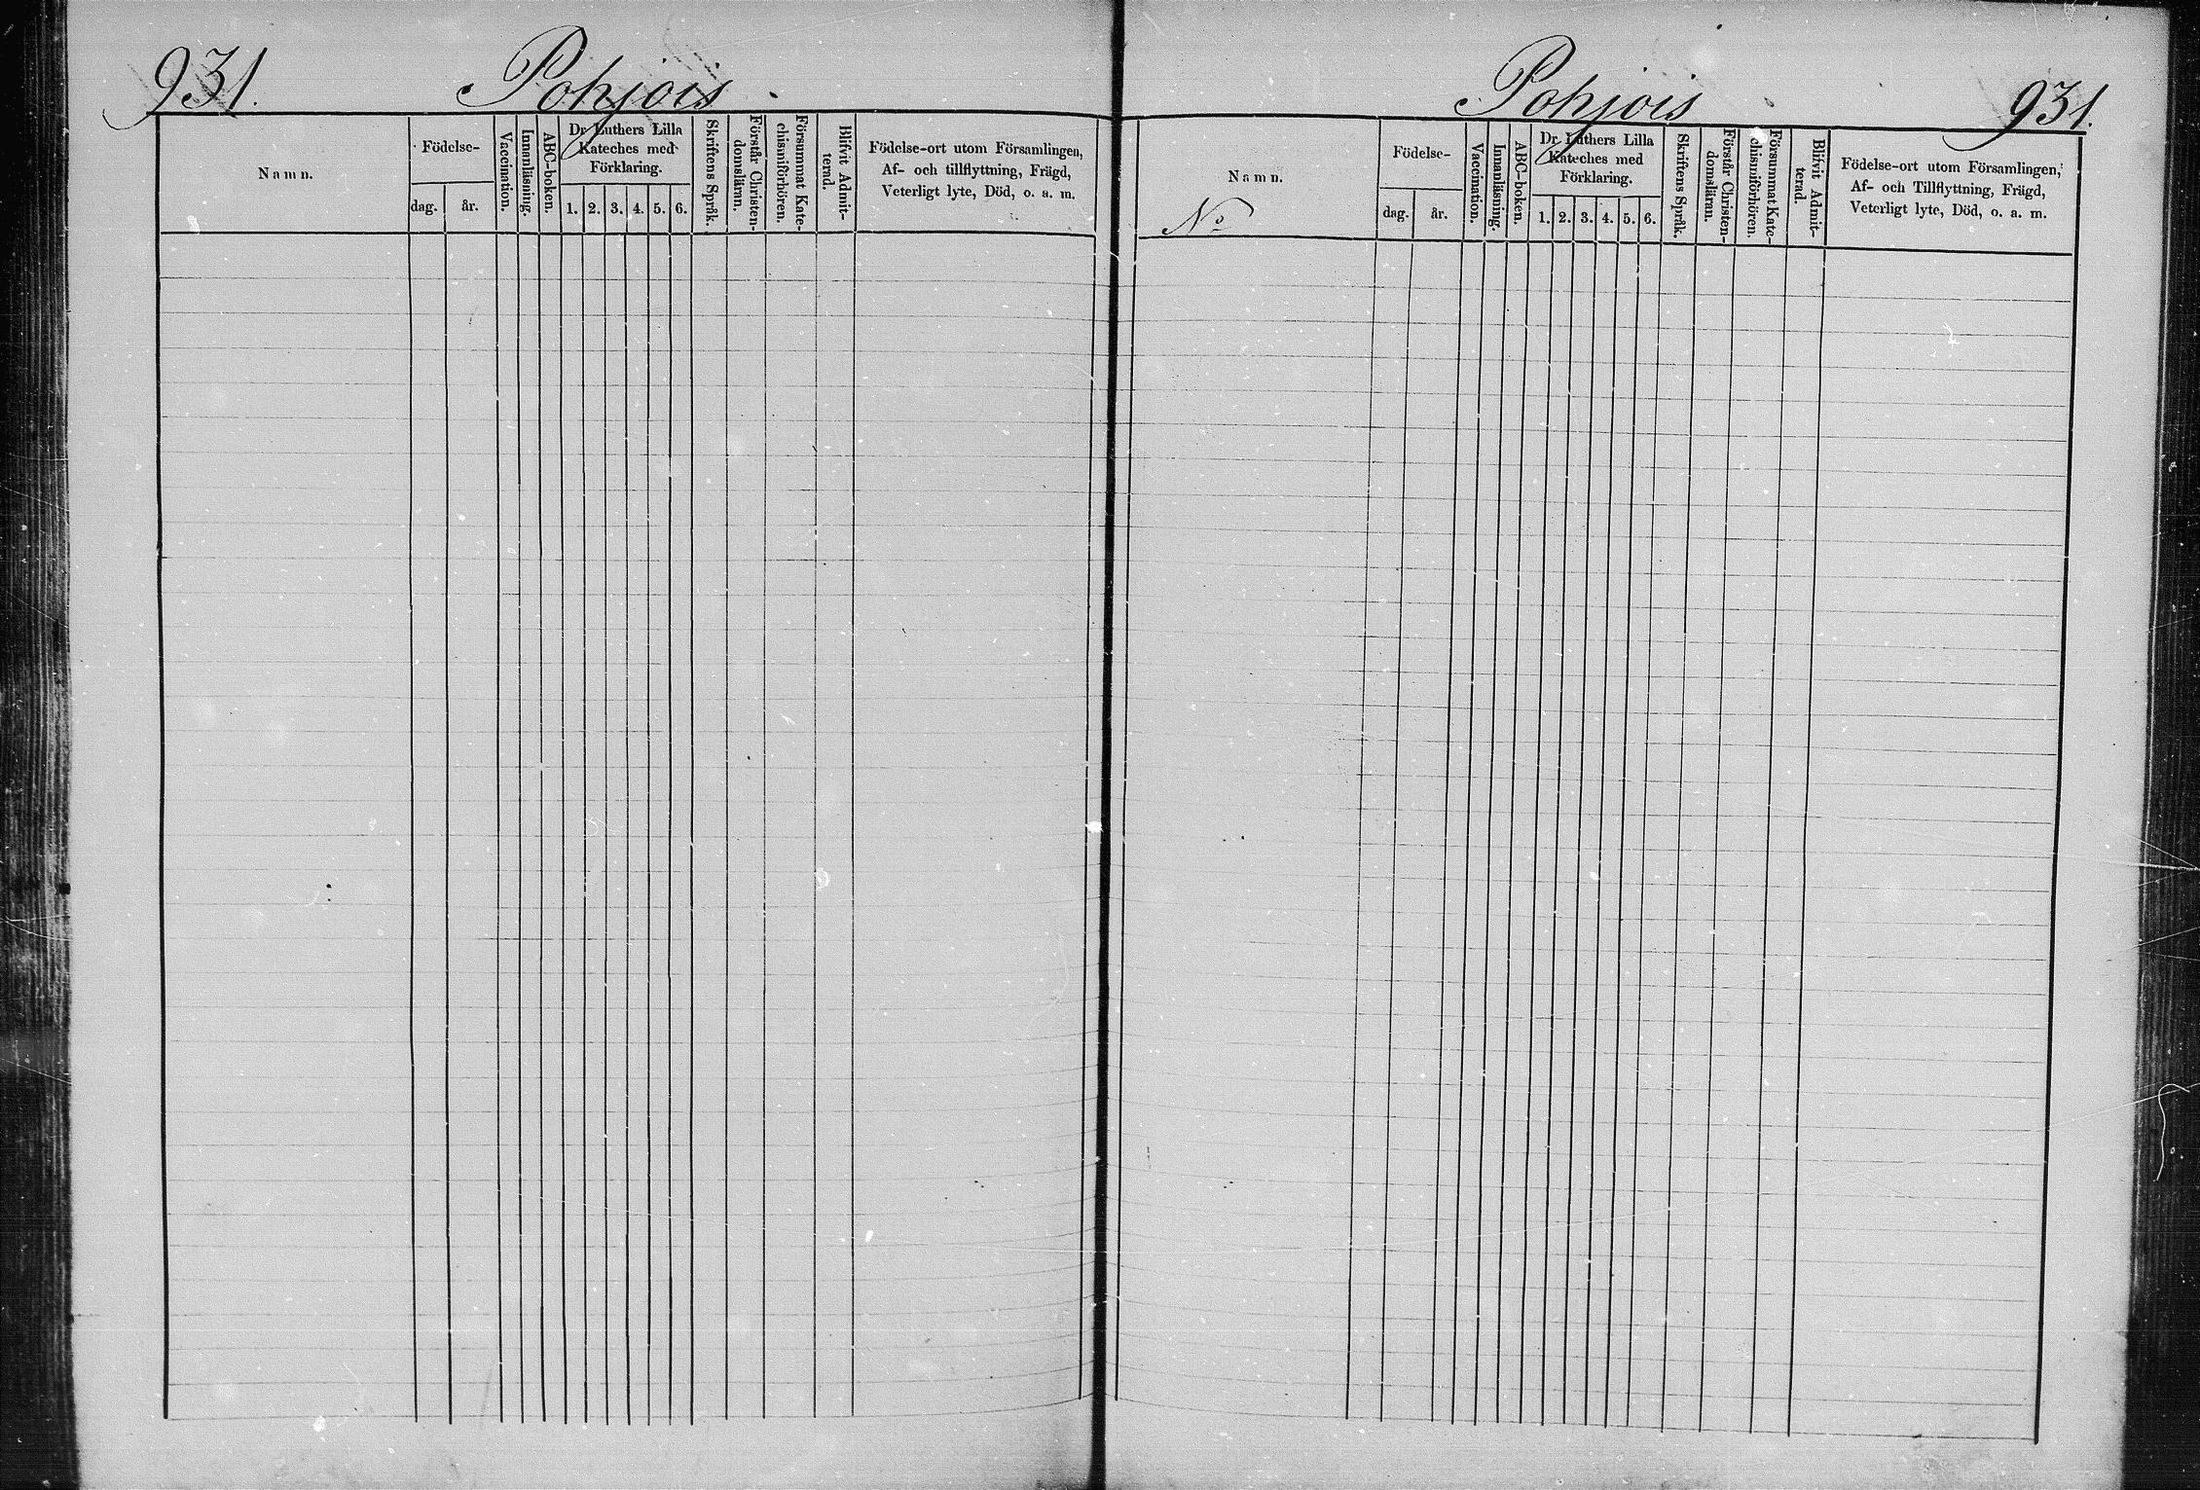 931. Pohjois
Namn.
Födelse-
dag. år.
Vaccination.
Innanläsning.
ABC-boken.
Dr Luthers Lilla
Kateches med
Förklaring.
1. 2. 3. 4. 5. 6.
Skriftens Språk.
Förstår Christen-
domsläran.
Försummat Kate-
chismiförhören.
Blifvit Admit-
terad.
Födelse-ort utom Församlingen,
Af- och tillflyttning, Frägd,
Veterligt lyte, Död, o. a. m.
Pohjois 931.
Namn.
No
Födelse-
dag. år.
Vaccination.
Innanläsning.
ABC-boken.
Dr. Luthers Lilla
Kateches med
Förklaring.
1. 2. 3. 4. 5. 6.
Skriftens Språk.
Förstår Christen-
domsläran.
Försummat Kate-
chismiförhören.
Blifvit Admit-
terad.
Födelse-ort utom Församlingen,
Af- och Tillflyttning, Frägd,
Veterligt lyte, Död, o. a. m.